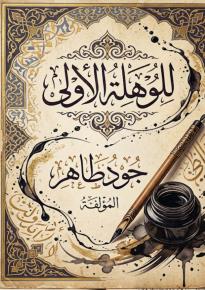 للوهلة الأولى
جود طاهر
المؤلفة